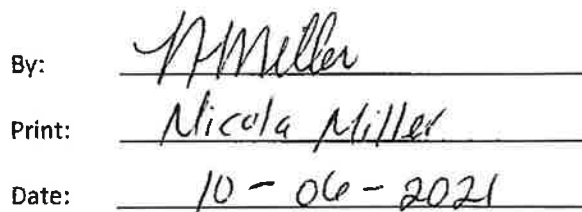 By: NMiller
Print: Nicola Miller
Date: 10-06-2021